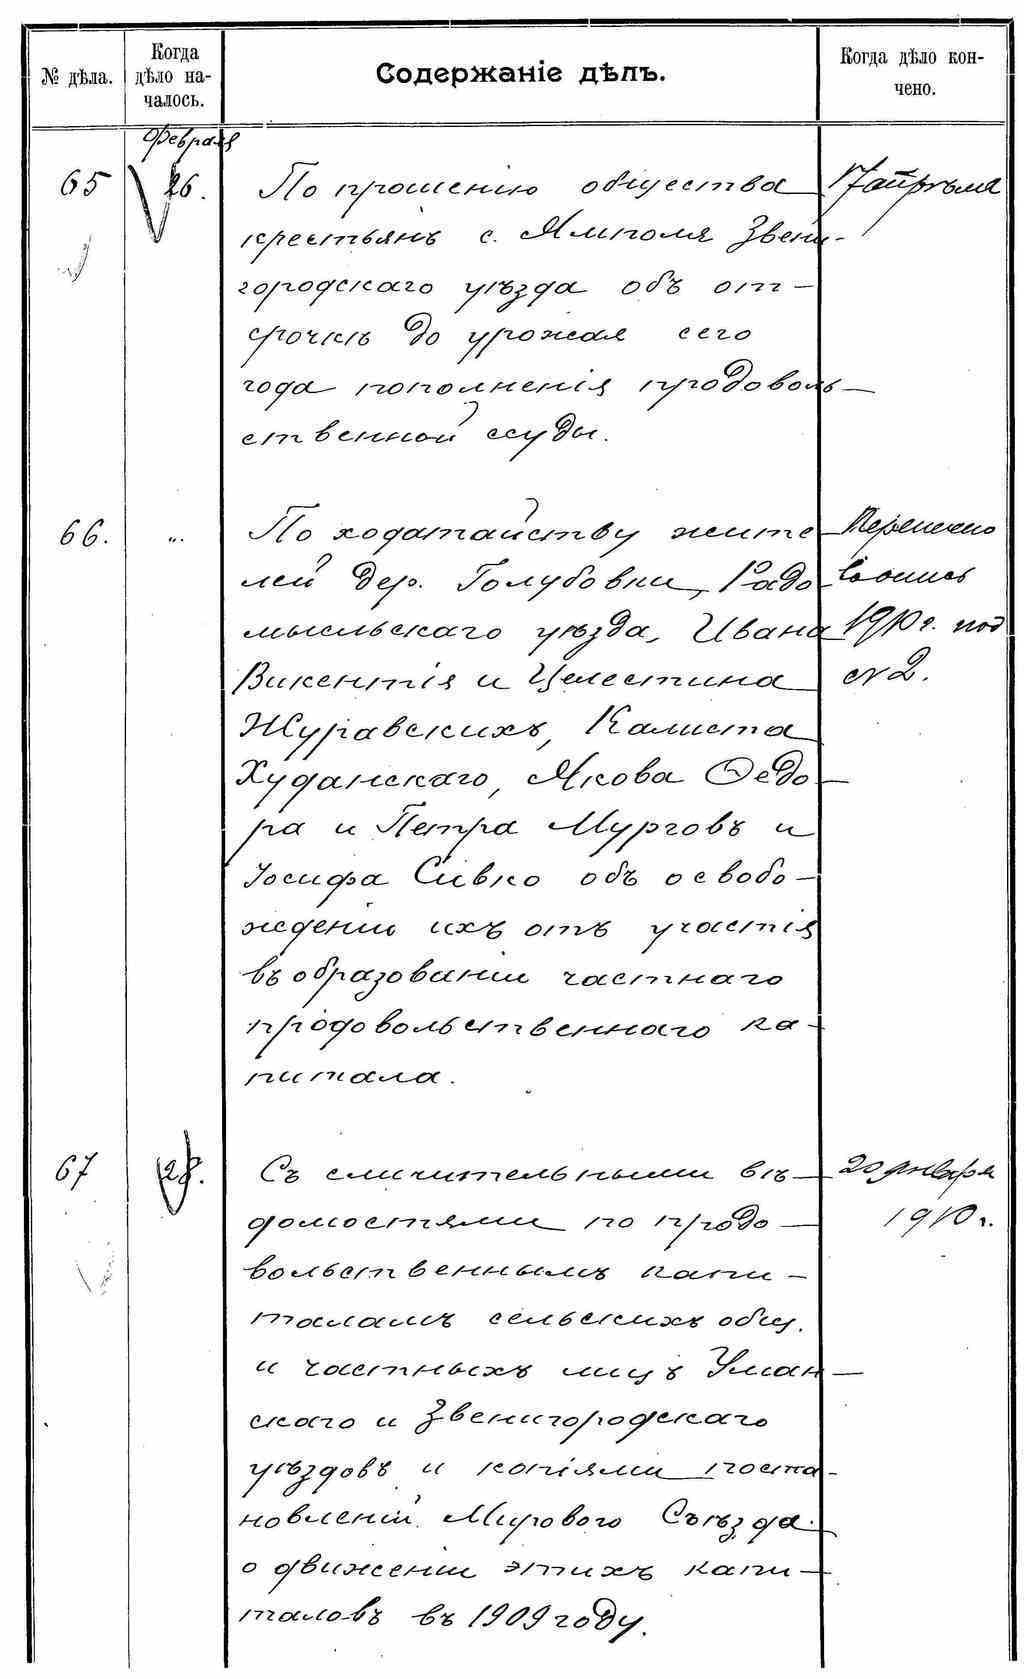 № дѣла.
Когда
дѣло на-
чалось.
Содержаніе дѣлъ.
Когда дѣло кон-
чено.
Февраля
65
26.
По прошенію общества
крестьянъ с. Ямполя Звени-
городскаго уѣзда объ от-
срочкѣ до урожая сего
года пополненія продоволь-
ственной ссуды.
17 апрѣля
66.
"
По ходатайству жите-
лей дер. Голубовки, Радо-
мысльскаго уѣзда, Ивана
Викентія и Целестина
Журавскихъ, Калиста
Худанскаго, Якова Ѳедо-
ра и Петра Мурговъ и
Іосифа Сивко объ освобо-
жденіи ихъ отъ участія
въ образованіи частнаго
продовольственнаго ка-
питала.
Перенесено
въ опись
1910 г. под
№ 2.
67
28.
Съ сличительными вѣ-
домостями по продо-
вольственнымъ капи-
таламъ сельскихъ общ.
и частныхъ лицъ Уман-
скаго и Звенигородскаго
уѣздовъ и копіями поста-
новленій Мирового Съѣзда
о движеніи этихъ капи-
таловъ въ 1909 году.
20 января
1910 г.